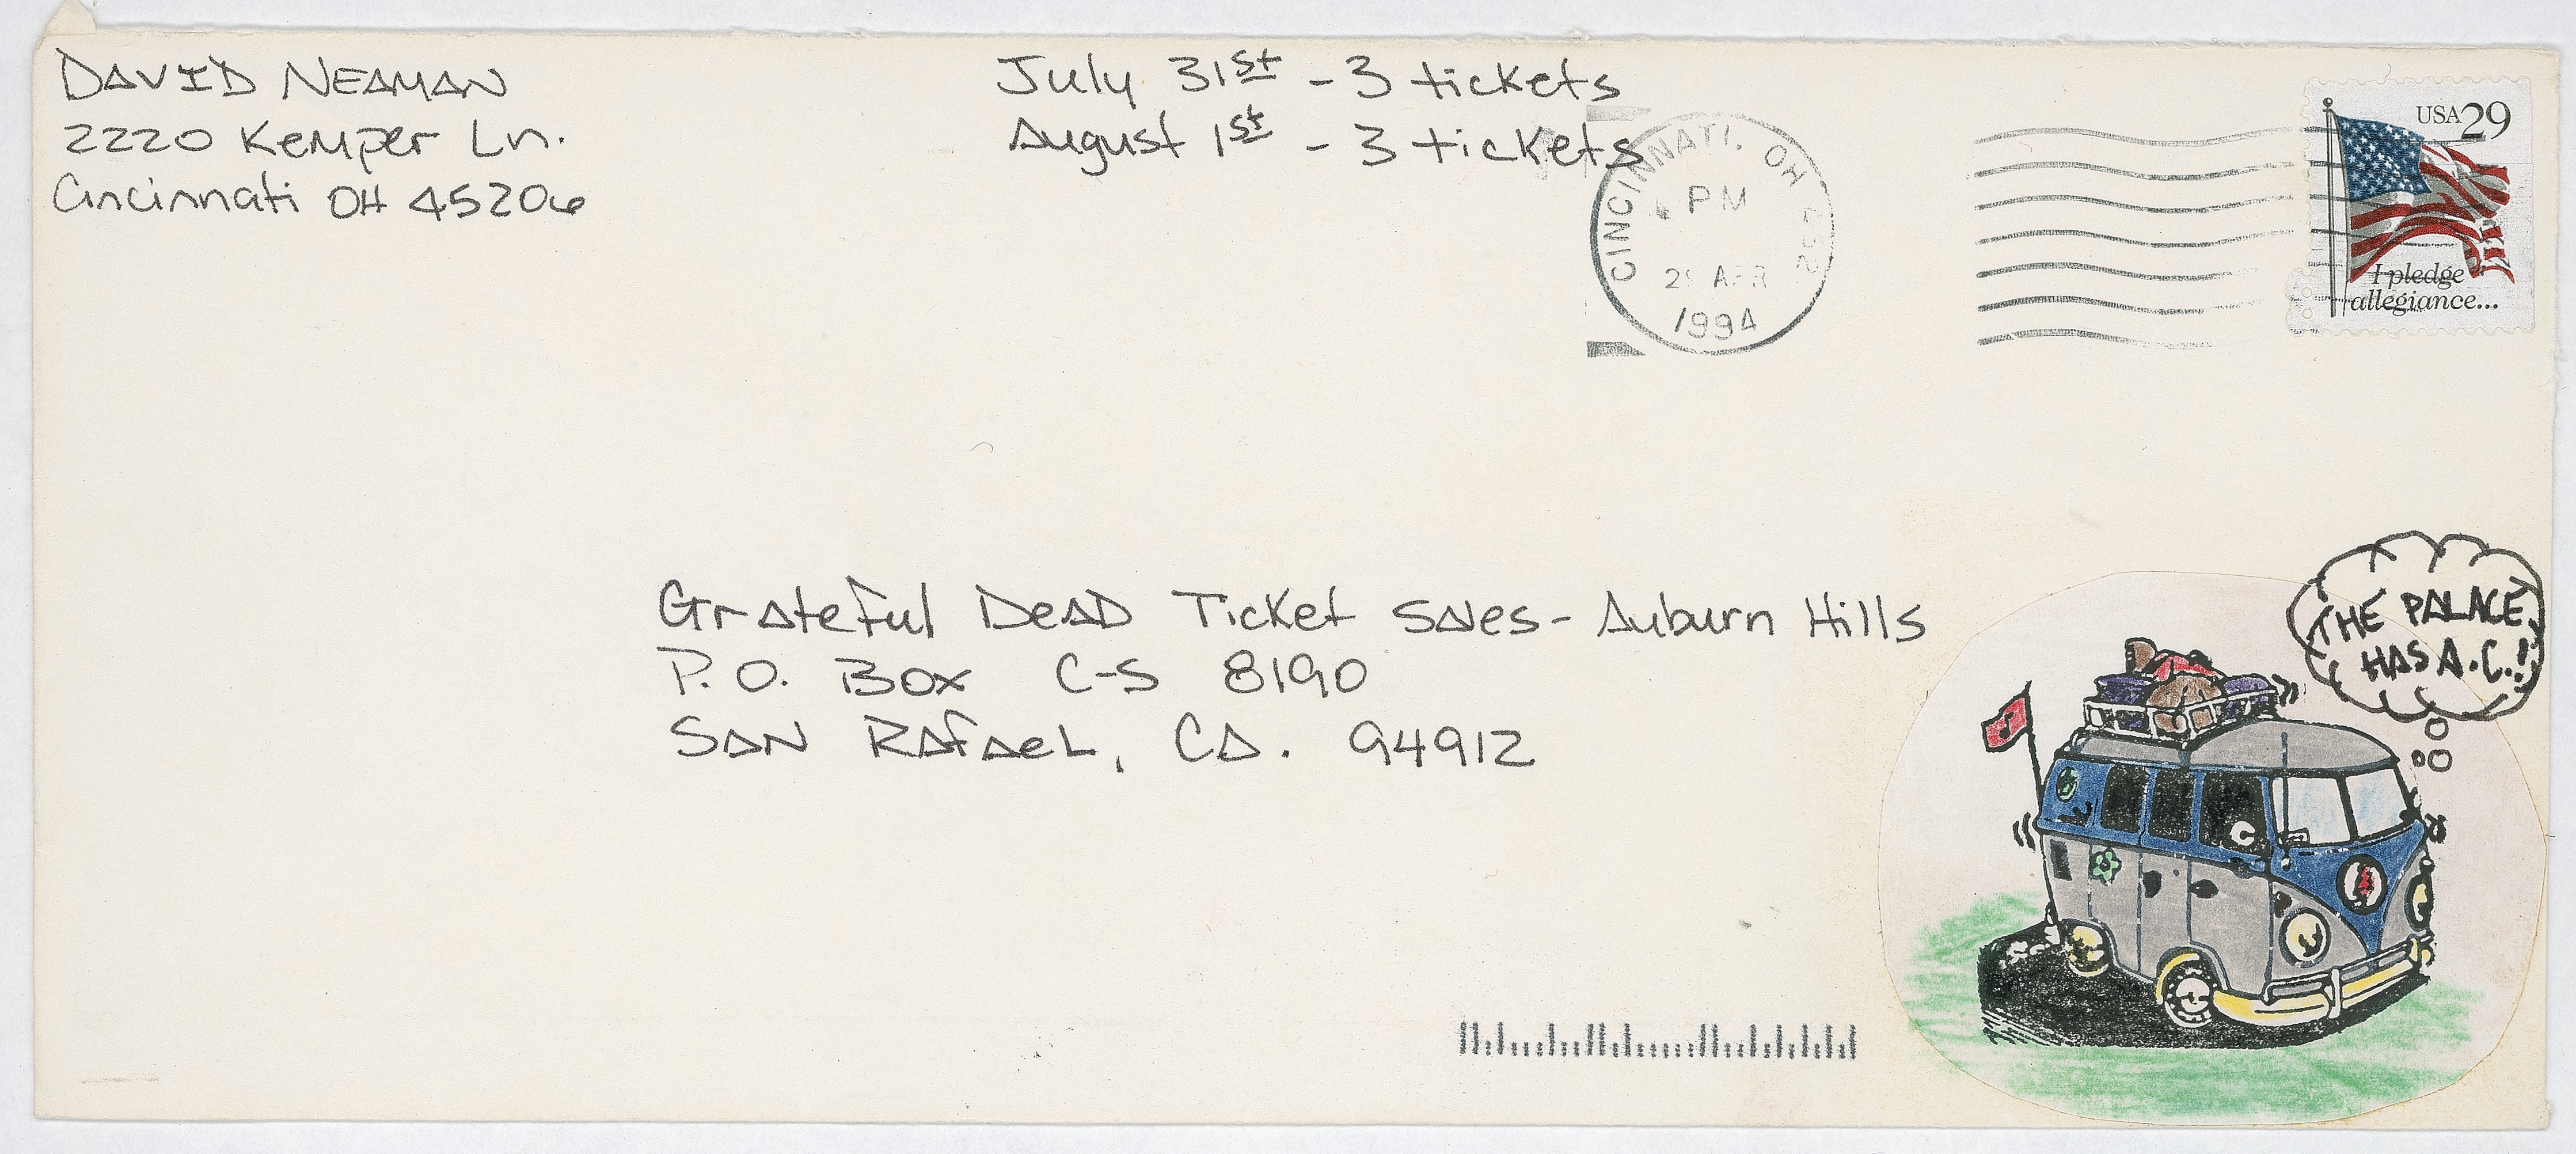 DAVID NEAMAN
2220 Kemper Ln.
Cincinnati OH 45206
July 31st - 3 tickets
August 1st - 3 tickets
CINCINNATI, OH 452
PM
APR
1994
USA 29
I pledge
allegiance...
Grateful Dead Ticket Sales - Auburn Hills
P.O. Box C-S 8190
San Rafael, CA. 94912
THE PALACE
HAS A.C.!